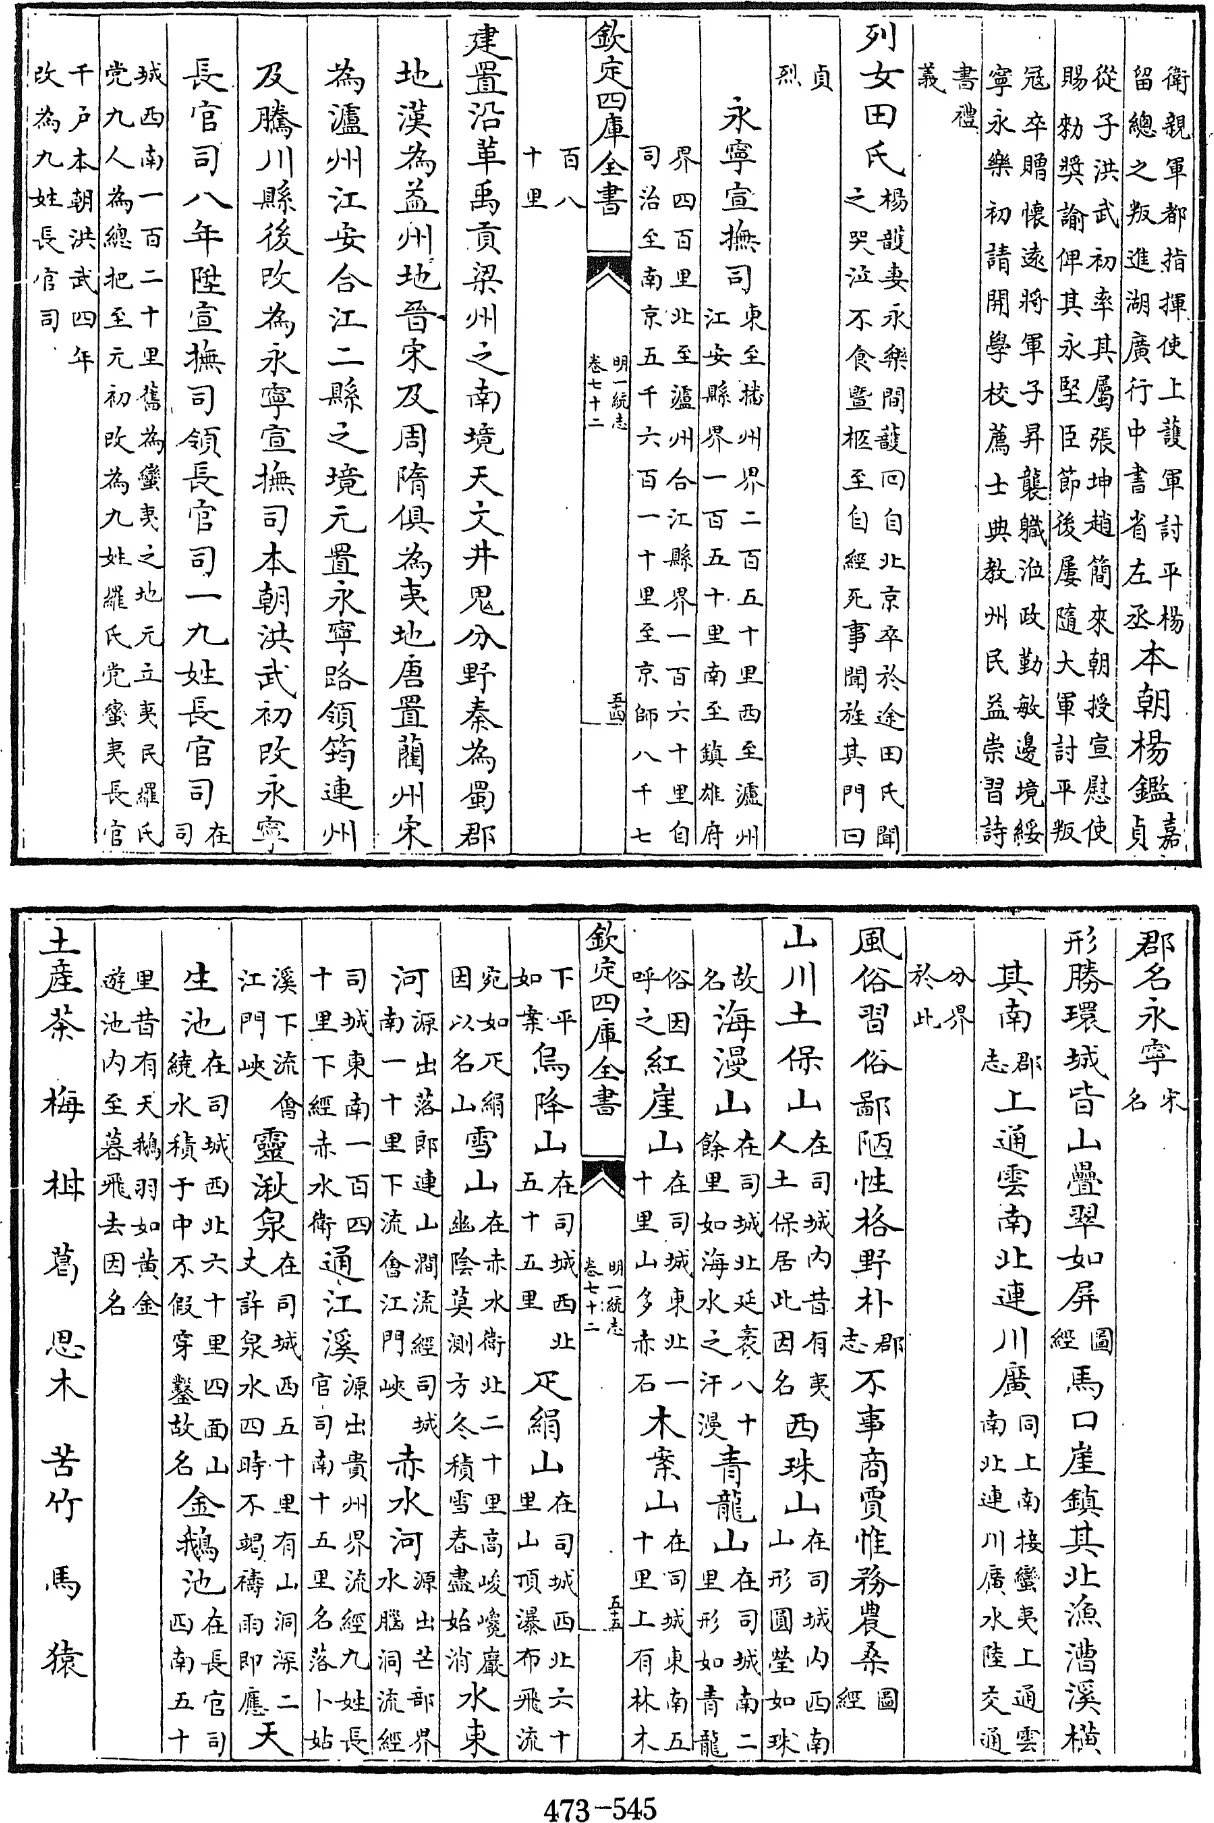 衛親軍都指揮使上䕶軍討平楊留總之叛進湖廣行中書省左丞本朝楊鑑嘉貞
從子洪武初率其屬張坤趙簡來朝授宣慰使賜勑獎諭俾其永堅臣節後屢隨大軍討平叛
冦卒贈懷遠將軍子昇襲職涖政勤敏邊境綏寧永樂初請開學校薦士典教州民益崇習詩
書禮義
列女田氏楊䕶妻永樂間䕶回自北京卒於途田氏聞之哭泣不食暨柩至自經死事聞旌其門曰
貞烈
永寧宣撫司東至播州界二百五十里西至瀘州江安縣界一百五十里南至鎮雄府
界四百里北至瀘州合江縣界一百六十里自司治至南京五千六百一十里至京師八千七
欽定四庫全書 明一統志卷七十二 五十四
百八十里
建置沿革禹貢梁州之南境天文井鬼分野秦為蜀郡
地漢為益州地晉宋及周隋俱為夷地唐置藺州宋
為瀘州江安合江二縣之境元置永寧路領筠連州
及騰川縣後改為永寧宣撫司本朝洪武初改永寧
長官司八年陞宣撫司領長官司一九姓長官司在司
城西南一百二十里舊為蠻夷之地元立夷民羅氏党九人為總把至元初改為九姓羅氏党蠻夷長官
千戶本朝洪武四年改為九姓長官司
郡名永寧宋名
形勝環城皆山疊翠如屏圖經馬口崖鎮其北漁漕溪橫
其南郡志上通雲南北連川廣同上南接蠻夷上通雲南北連川廣水陸交通
分界於此
風俗習俗鄙陋性格野朴郡志不事商賈惟務農桑圖經
山川土保山在司城内昔有夷人土保居此因名西珠山在司城内西南山形圓瑩如珠
故名海漫山在司城北延袤八十餘里如海水之汗漫青龍山在司城南二里形如青龍
俗因呼之紅崖山在司城東北一十里山多赤石木案山在司城東南五十里上有林木
欽定四庫全書 明一統志卷七十二 五十五
下平如案烏降山在司城西北五十五里疋絹山在司城西北六十里山頂瀑布飛流
宛如疋絹因以名山雪山在赤水衛北二十里高峻巉巖幽陰莫測方冬積雪春盡始消水東
河源出落郎連山澗流經司城南一十里下流會江門峽赤水河源出芒部界水腦洞流經
司城東南一百四十里下經赤水衛通江溪源出貴州界流經九姓長官司南十五里名落卜姑
溪下流會江門峽靈湫泉在司城西五十里有山洞深二丈許泉水四時不竭禱雨即應天
生池在司城西北六十里四面山繞水積于中不假穿鑿故名金鵝池在長官司西南五十
里昔有天鵝羽如黃金遊池内至暮飛去因名
土產茶 梅 柑 葛 思木 苦竹 馬 猿
473-545